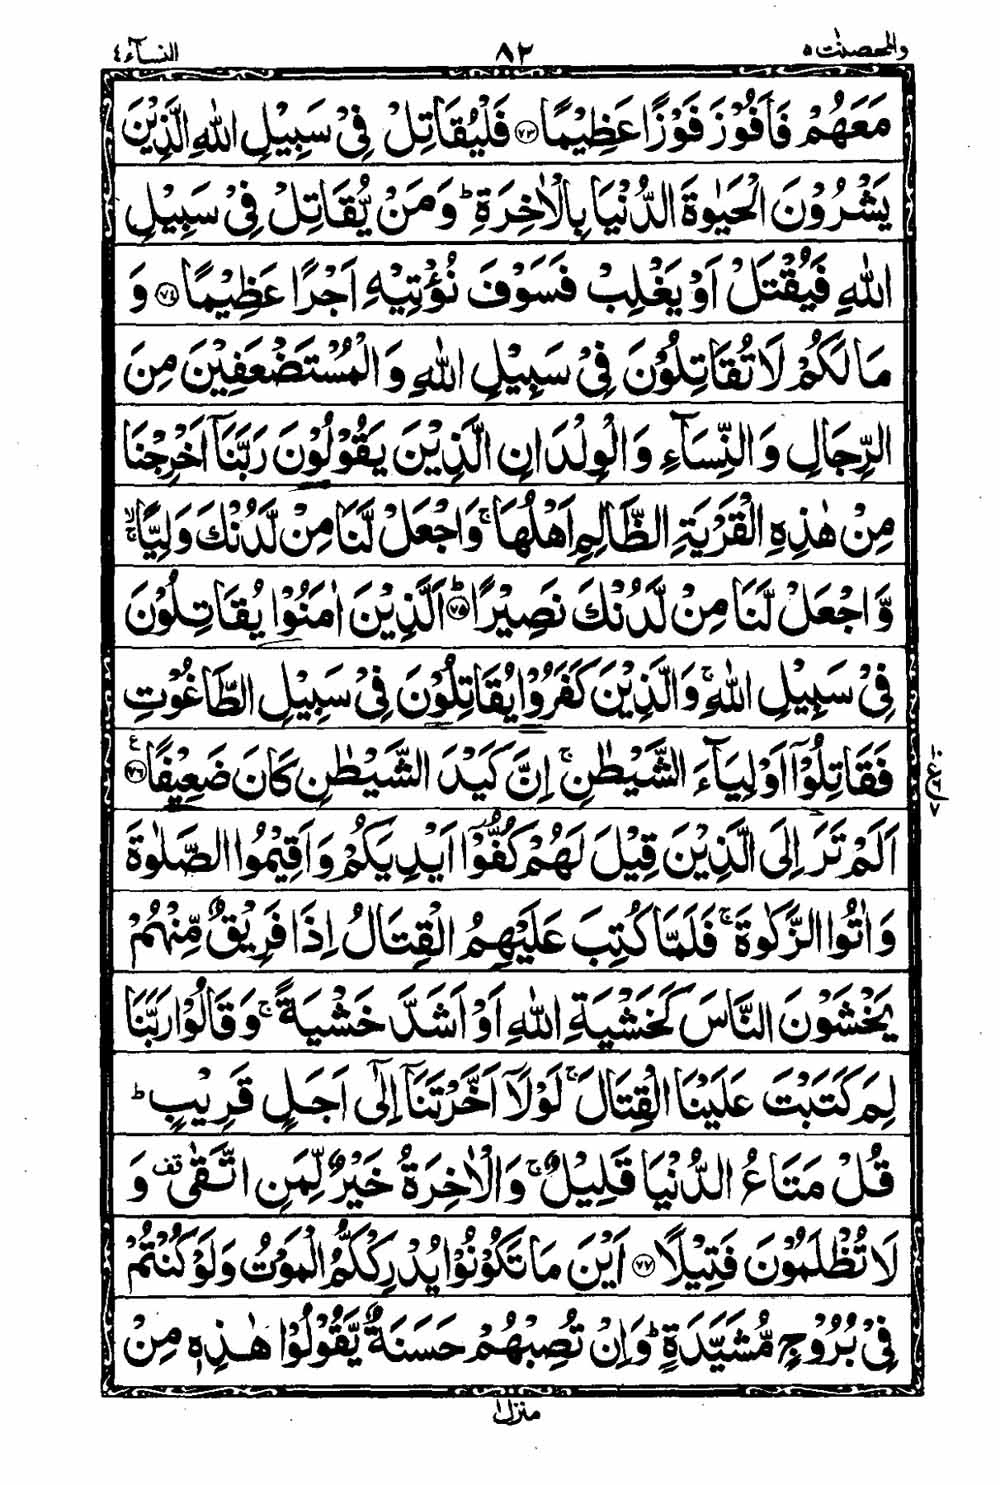 والمحصنٰت ٥ ٨٢ النسآء ٤
مَعَهُمْ فَاَفُوْزَ فَوْزًا عَظِيْمًا ﴿٧٣﴾ فَلْيُقَاتِلْ فِىْ سَبِيْلِ اللّٰهِ الَّذِيْنَ
يَشْرُوْنَ الْحَيٰوةَ الدُّنْيَا بِالْاٰخِرَةِ ؕ وَمَنْ يُّقَاتِلْ فِىْ سَبِيْلِ
اللّٰهِ فَيُقْتَلْ اَوْ يَغْلِبْ فَسَوْفَ نُؤْتِيْهِ اَجْرًا عَظِيْمًا ﴿٧٤﴾ وَ
مَا لَكُمْ لَا تُقَاتِلُوْنَ فِىْ سَبِيْلِ اللّٰهِ وَالْمُسْتَضْعَفِيْنَ مِنَ
الرِّجَالِ وَالنِّسَآءِ وَالْوِلْدَانِ الَّذِيْنَ يَقُوْلُوْنَ رَبَّنَاۤ اَخْرِجْنَا
مِنْ هٰذِهِ الْقَرْيَةِ الظَّالِمِ اَهْلُهَا ۚ وَاجْعَلْ لَّنَا مِنْ لَّدُنْكَ وَلِيًّا ۙۚ
وَّاجْعَلْ لَّنَا مِنْ لَّدُنْكَ نَصِيْرًا ؕ﴿٧٥﴾ اَلَّذِيْنَ اٰمَنُوْا يُقَاتِلُوْنَ
فِىْ سَبِيْلِ اللّٰهِ ۚ وَالَّذِيْنَ كَفَرُوْا يُقَاتِلُوْنَ فِىْ سَبِيْلِ الطَّاغُوْتِ
فَقَاتِلُوْۤا اَوْلِيَآءَ الشَّيْطٰنِ ۚ اِنَّ كَيْدَ الشَّيْطٰنِ كَانَ ضَعِيْفًا ﴿٧٦﴾ ع
اَلَمْ تَرَ اِلَى الَّذِيْنَ قِيْلَ لَهُمْ كُفُّوْۤا اَيْدِيَكُمْ وَاَقِيْمُوا الصَّلٰوةَ
وَاٰتُوا الزَّكٰوةَ ۚ فَلَمَّا كُتِبَ عَلَيْهِمُ الْقِتَالُ اِذَا فَرِيْقٌ مِّنْهُمْ
يَخْشَوْنَ النَّاسَ كَخَشْيَةِ اللّٰهِ اَوْ اَشَدَّ خَشْيَةً ۚ وَقَالُوْا رَبَّنَا
لِمَ كَتَبْتَ عَلَيْنَا الْقِتَالَ ۚ لَوْلَاۤ اَخَّرْتَنَاۤ اِلٰٓى اَجَلٍ قَرِيْبٍ ؕ
قُلْ مَتَاعُ الدُّنْيَا قَلِيْلٌ ۚ وَالْاٰخِرَةُ خَيْرٌ لِّمَنِ اتَّقٰى قف وَ
لَا تُظْلَمُوْنَ فَتِيْلًا ﴿٧٧﴾ اَيْنَ مَا تَكُوْنُوْا يُدْرِكْكُّمُ الْمَوْتُ وَلَوْ كُنْتُمْ
فِىْ بُرُوْجٍ مُّشَيَّدَةٍ ؕ وَاِنْ تُصِبْهُمْ حَسَنَةٌ يَّقُوْلُوْا هٰذِهٖ مِنْ
منزل ١